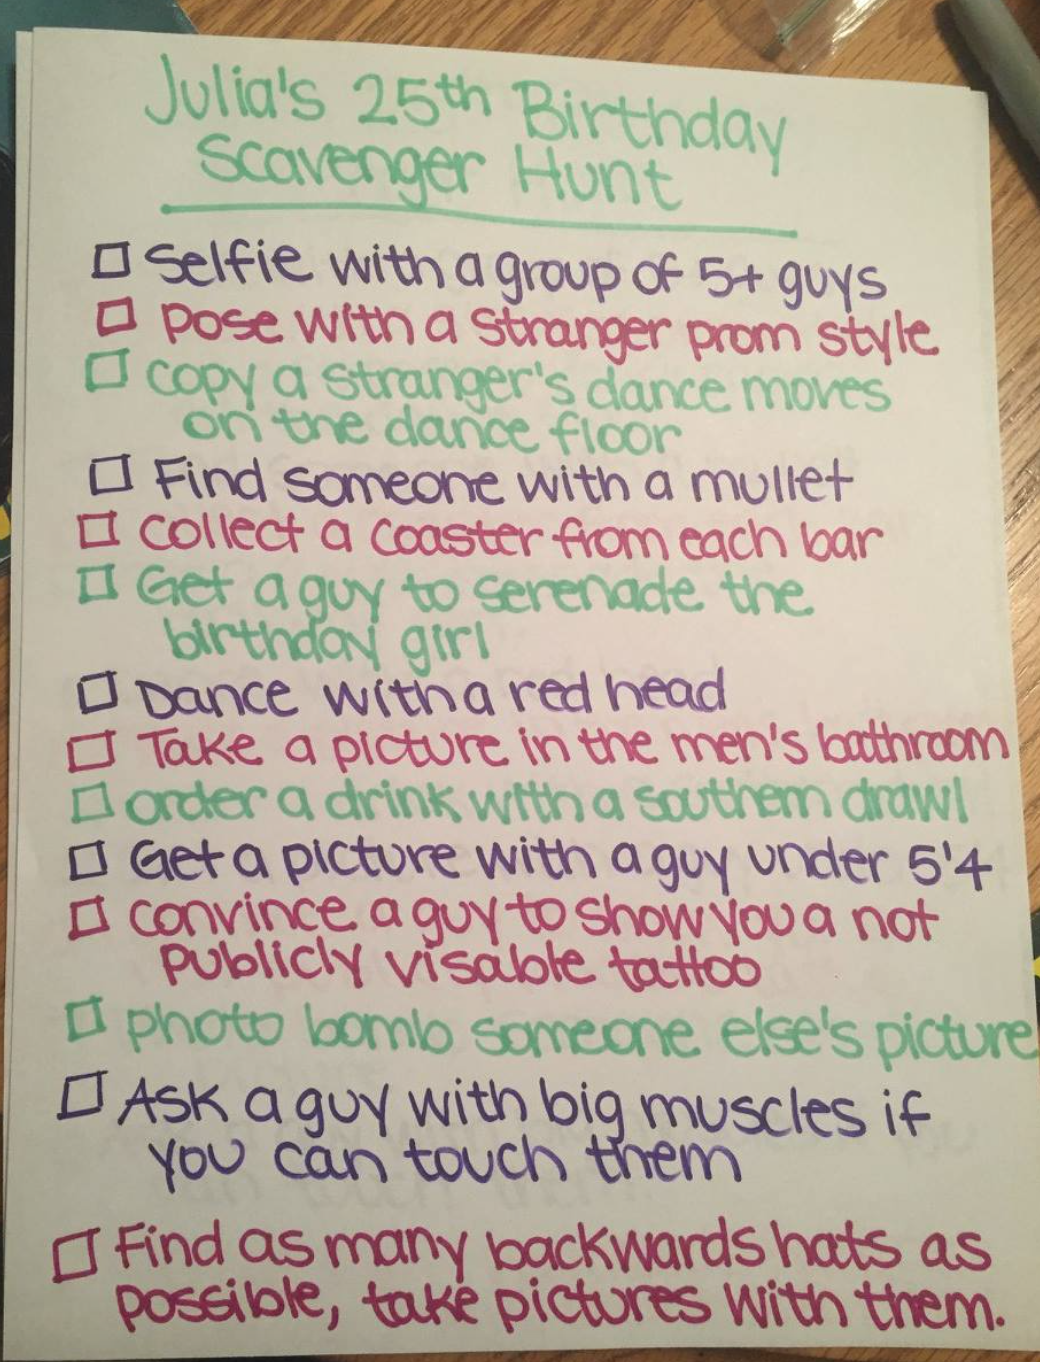 Julia's 25th Birthday
Scavenger Hunt
Selfie with a group of 5+ guys
Pose with a stranger prom style
copy a stranger's dance moves
on the dance floor
Find someone with a mullet
collect a coaster from each bar
Get a guy to serenade the
birthday girl
Dance with a red head
Take a picture in the men's bathroom
order a drink with a southern drawl
Get a picture with a guy under 5'4
convince a guy to show you a not
publicly visable tattoo
photo bomb someone else's picture
Ask a guy with big muscles if
you can touch them
Find as many backwards hats as
possible, take pictures with them.